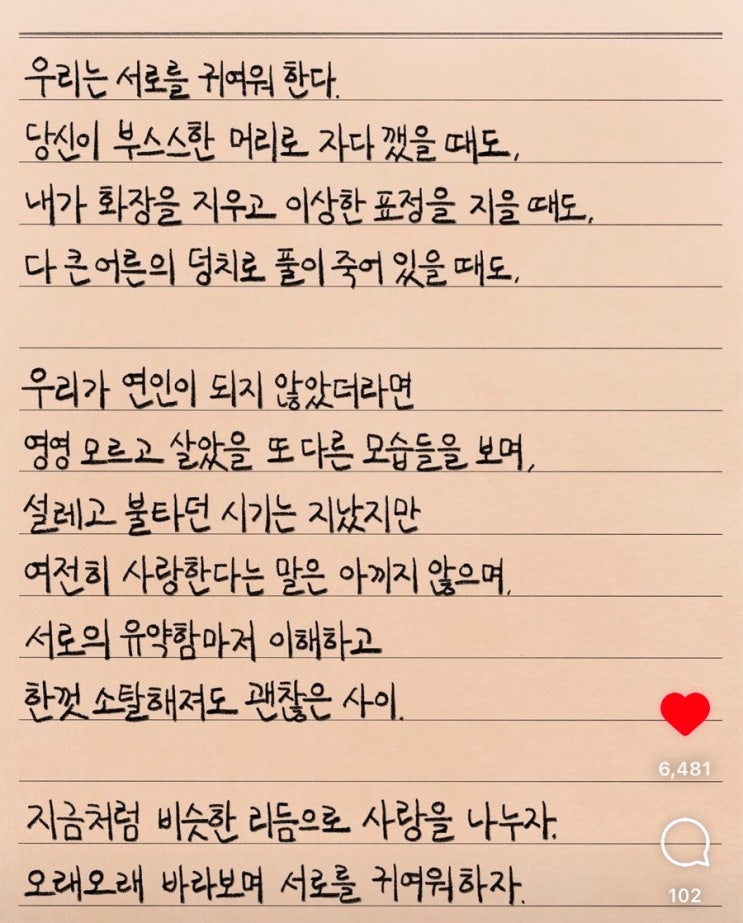 우리는 서로를 귀여워 한다.
당신이 부스스한 머리로 자다 깼을 때도,
내가 화장을 지우고 이상한 표정을 지을 때도,
다 큰 어른의 덩치로 풀이 죽어 있을 때도,
우리가 연인이 되지 않았더라면
영영 모르고 살았을 또 다른 모습들을 보며,
설레고 불타던 시기는 지났지만
여전히 사랑한다는 말은 아끼지 않으며,
서로의 유약함마저 이해하고
한껏 소탈해져도 괜찮은 사이.
6,481
지금처럼 비슷한 리듬으로 사랑을 나누자.
오래오래 바라보며 서로를 귀여워하자.
102